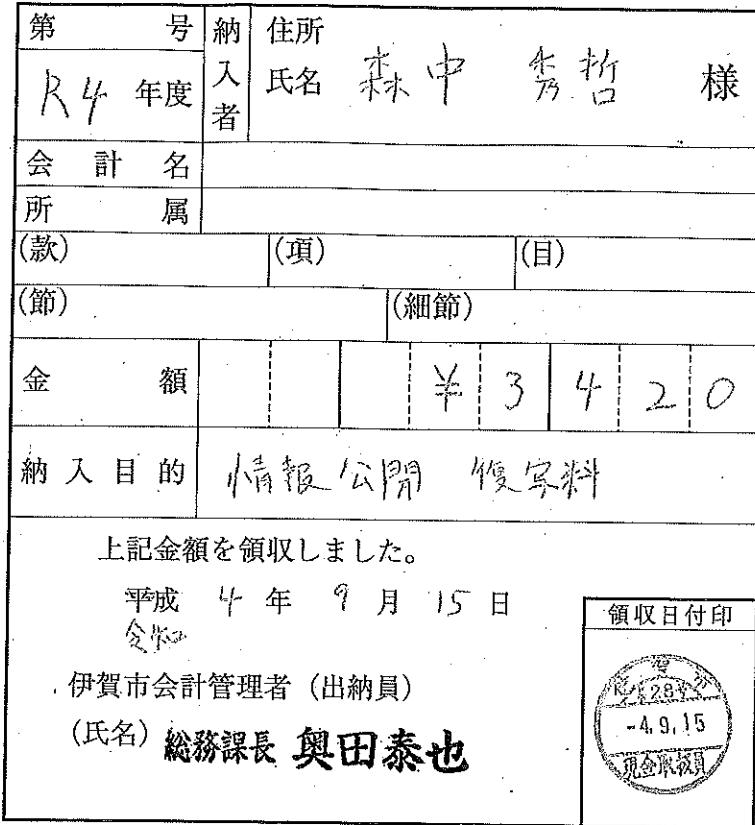 第 号
R4 年度
納入者
住所
氏名 森中 秀哲 様
会計名
所属
(款) (項) (目)
(節) (細節)
金額 ¥3420
納入目的 情報公開 複写料
上記金額を領収しました。
平成 4年 9月 15日
令和
伊賀市会計管理者(出納員)
(氏名) 総務課長 奥田泰也
領収日付印
伊賀市
28
-4.9.15
現金取扱員